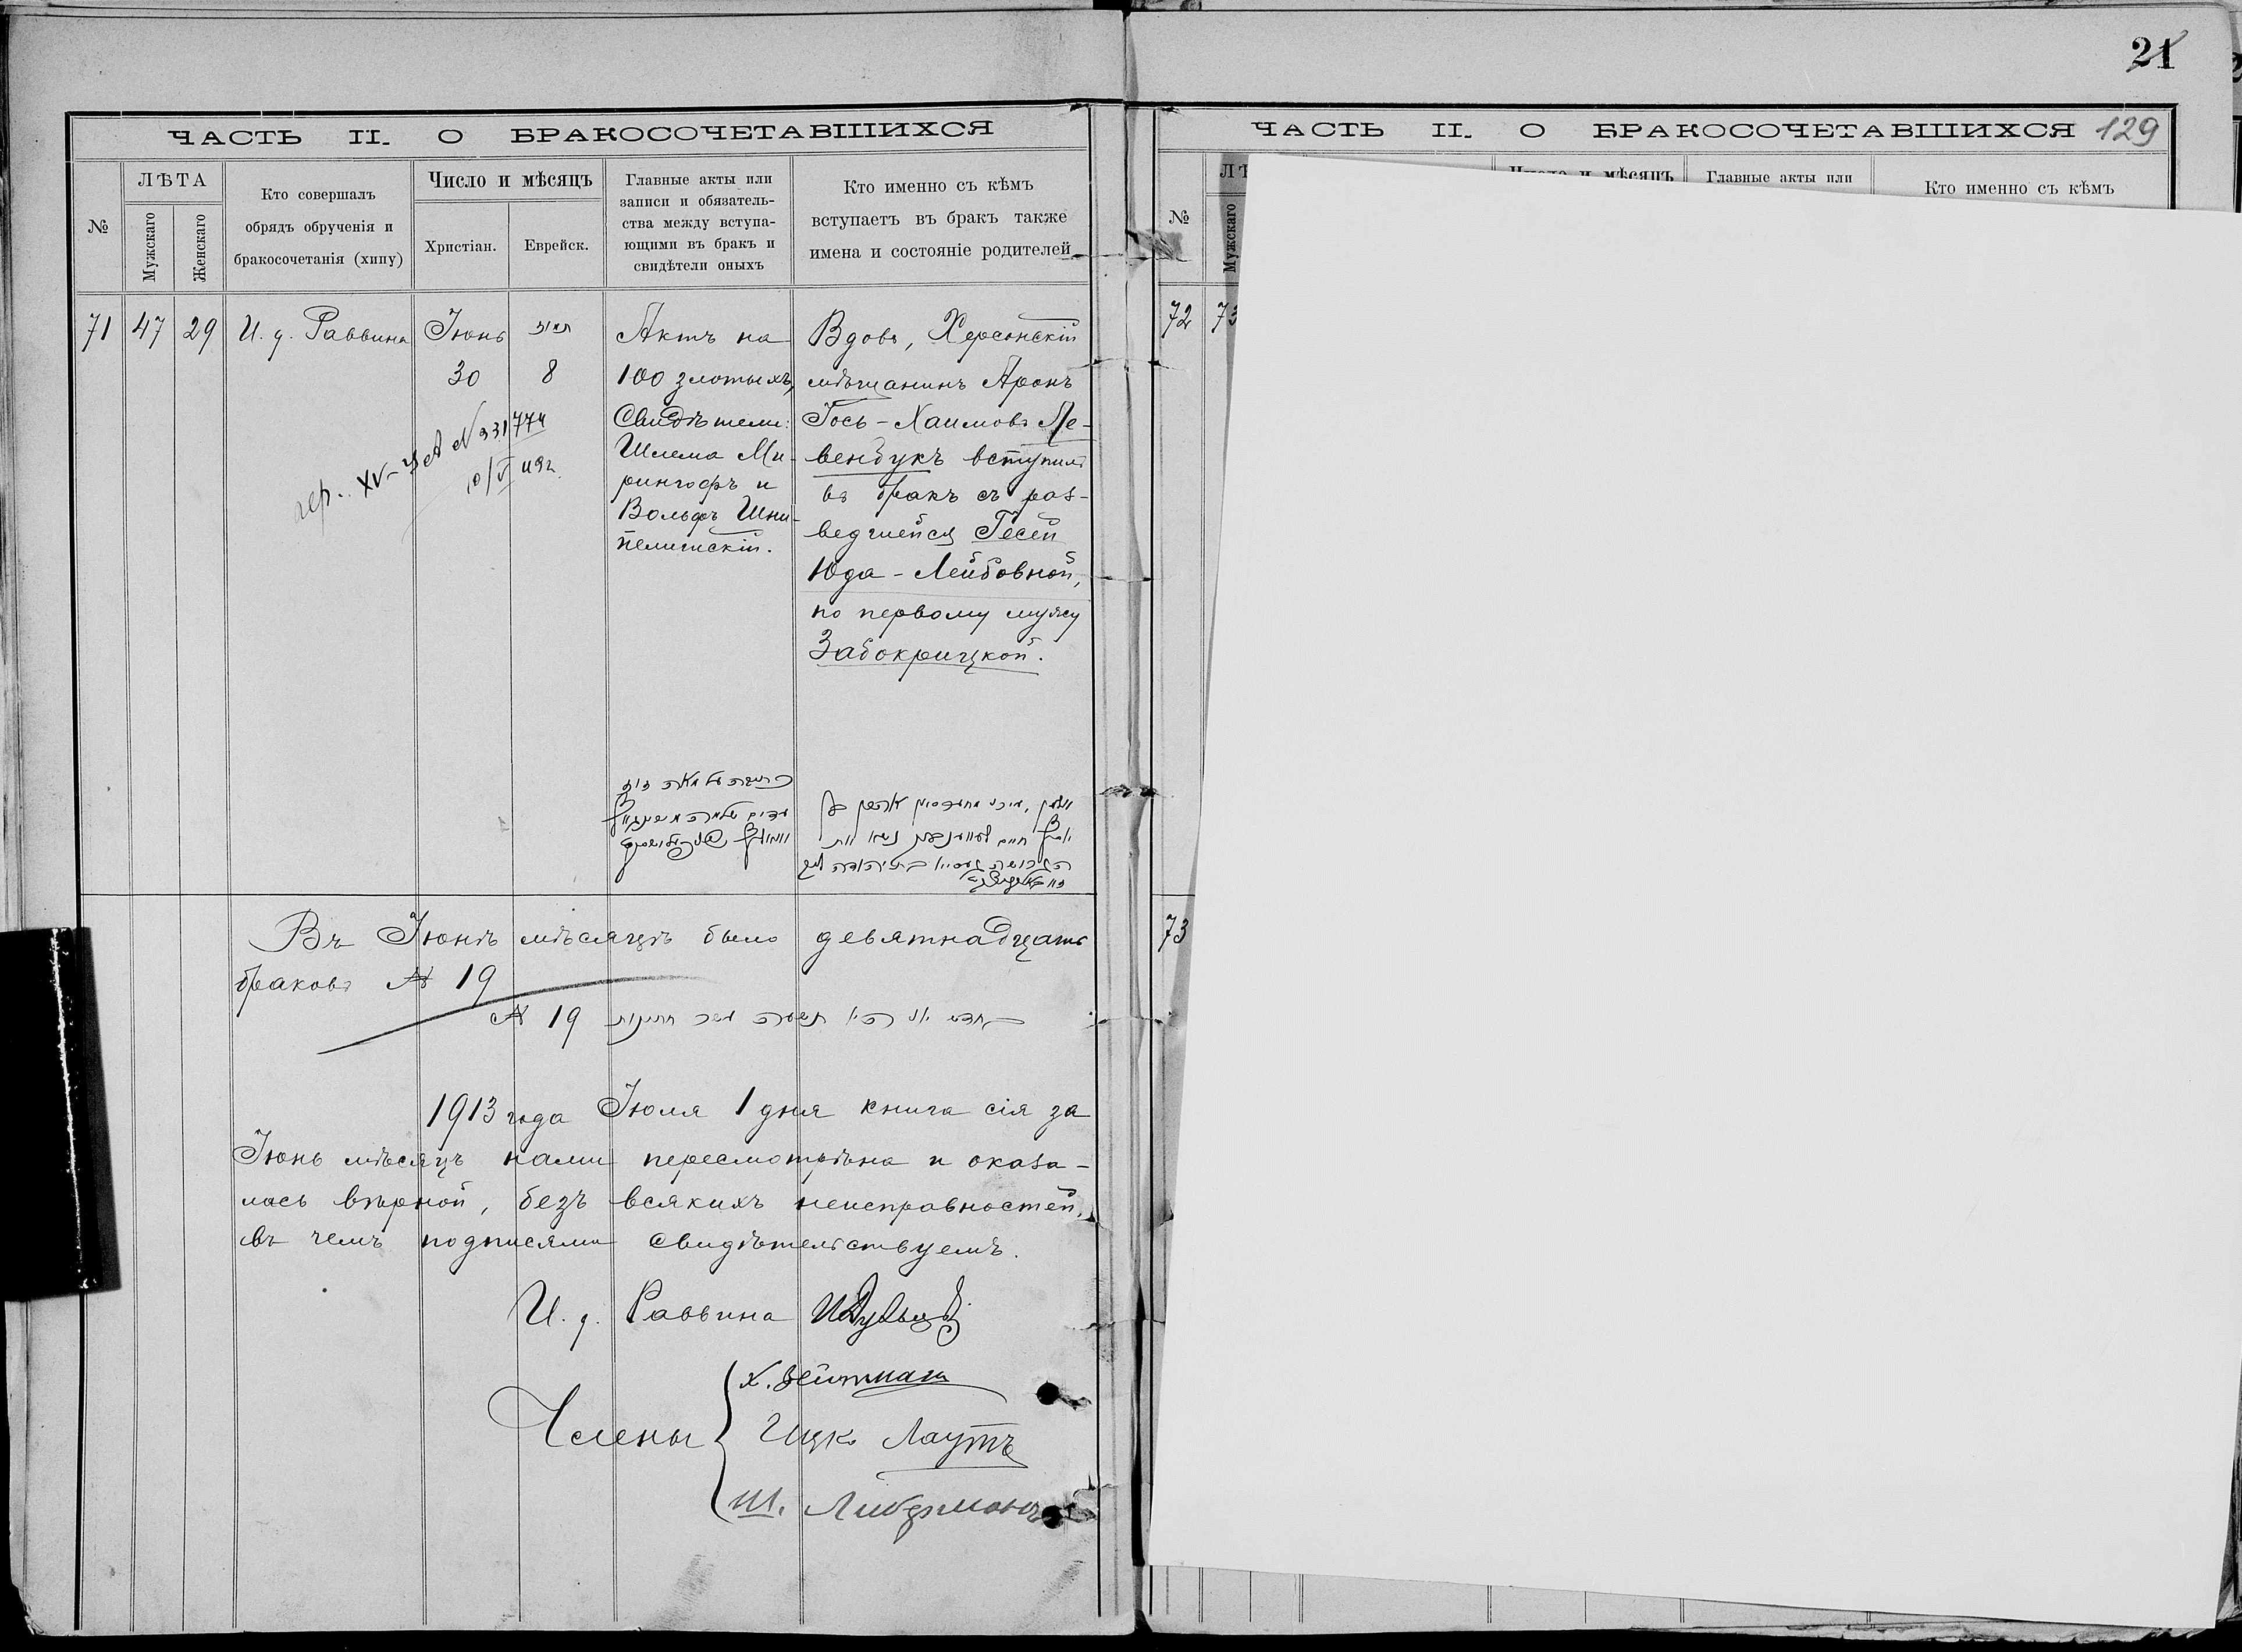 21
ЧАСТЬ II. О БРАКОСОЧЕТАВШИХСЯ
№
ЛѢТА
Мужскаго
Женскаго
Кто совершалъ
обрядъ обрученія и
бракосочетанія (хипу)
Число и мѣсяцъ
Христіан.
Еврейск.
Главные акты или
записи и обязатель-
ства между вступа-
ющими въ бракъ и
свидѣтели оныхъ
Кто именно съ кѣмъ
вступаетъ въ бракъ также
имена и состояніе родителей
71
47
29
И. д. Раввина
Іюнь
30
תמוז
8
Актъ на
100 злотыхъ,
Свидѣтели:
Шлема Ми-
рингофъ и
Вольфъ Шни-
пелишскій.
Вдовъ, Херсонскій
мѣщанинъ Аронъ
Іось-Хаимовъ Ле-
вендукъ вступилъ
въ бракъ съ раз-
ведшейся Гесей
Юда-Лейбовной,
по первому мужу
Забокрицкой.
Въ Іюнѣ мѣсяцѣ было девятнадцать
браковъ № 19
№ 19 תשעה עשר חתונות
1913 года Іюля 1 дня книга сія за
Іюнь мѣсяцъ нами пересмотрѣна и оказа-
лась вѣрной, безъ всякихъ неисправностей,
въ чемъ подписями свидѣтельствуемъ.
И. д. Раввина
Члены
Х. Вейтман
Ицко Лаутъ
Ш. Либерманъ
ЧАСТЬ II. О БРАКОСОЧЕТАВШИХСЯ 129
№
Мужскаго
Число и мѣсяцъ
Главные акты или
Кто именно съ кѣмъ
72
73
73